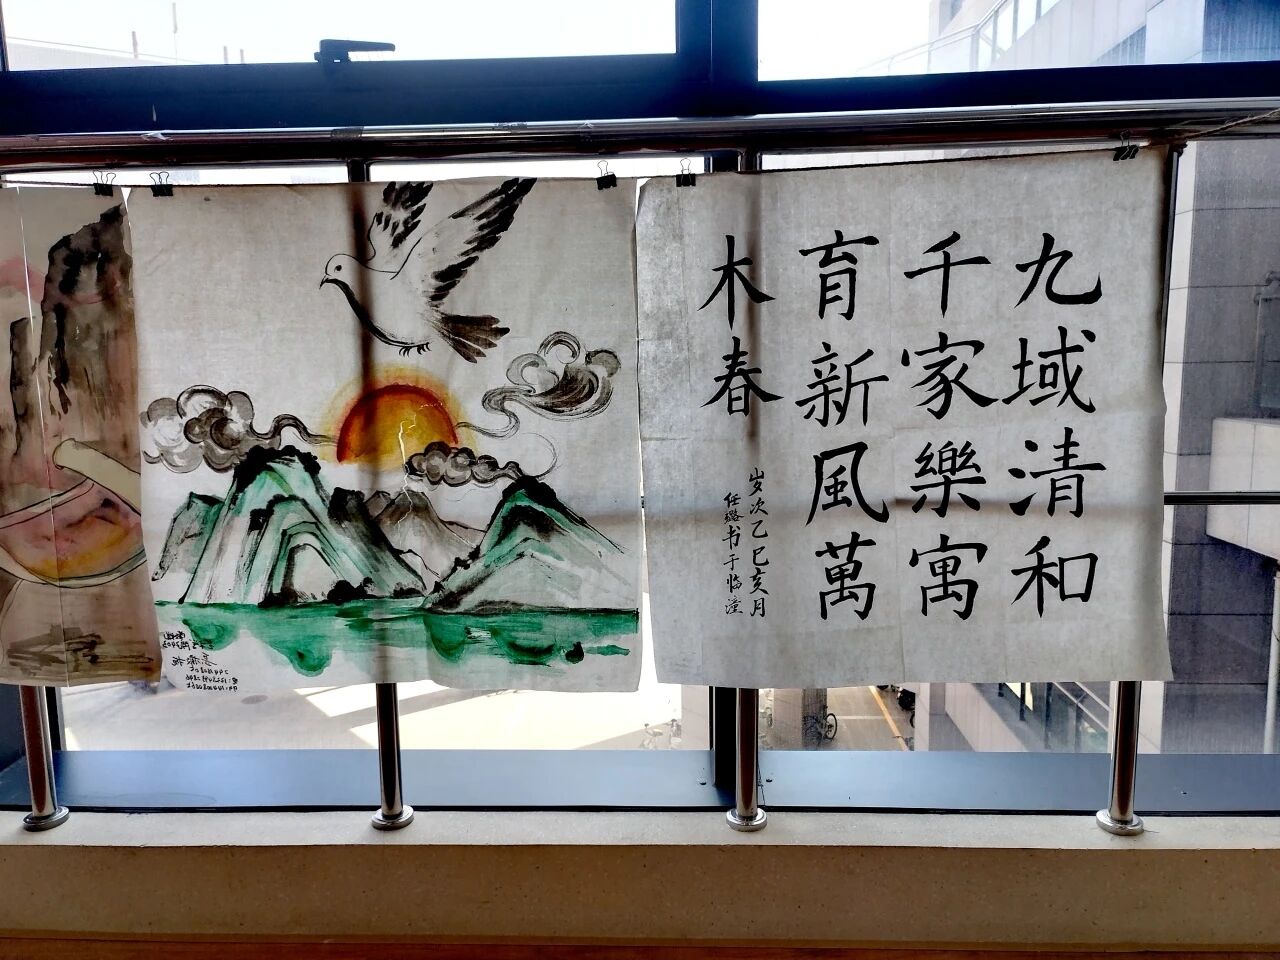 九域清和
千家樂寓
育新風萬
木春
岁次乙巳亥月
任璐书于临潼